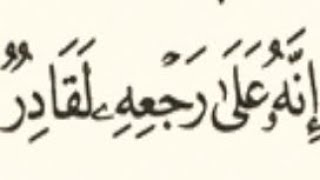 إِنَّهُۥ عَلَىٰ رَجۡعِهِۦ لَقَادِرٞ